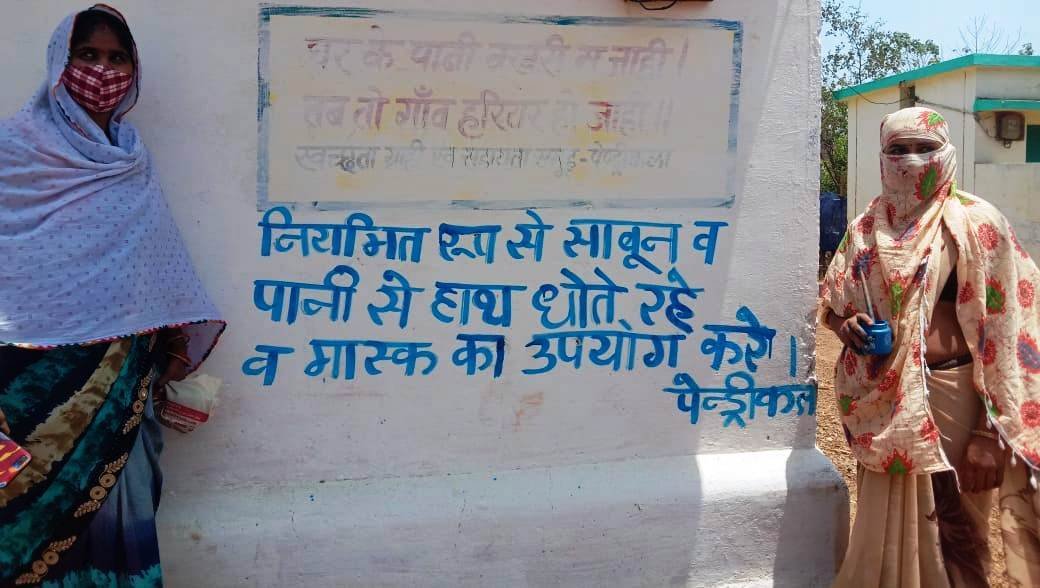 घर के पानी बखरी म जाही।
तब तो गाँव हरियर हो जाही।।
स्वच्छता ग्राही एवं सहायता समूह-पेण्ड्रीकला
नियमित रूप से साबून व
पानी से हाथ धोते रहे
व मास्क का उपयोग करे।
पेन्ड्रीकला